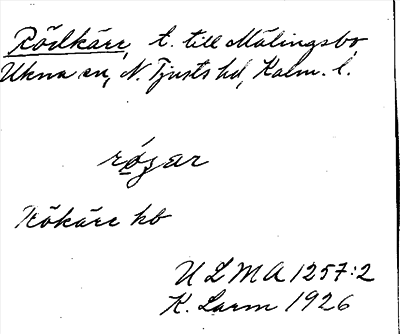 Rödkärr, t. till Målingsbo,
Ukna sn, N. Tjusts hd, Kalm. l.
Rökärr kb
ULMA 1257:2
K. Larm 1926